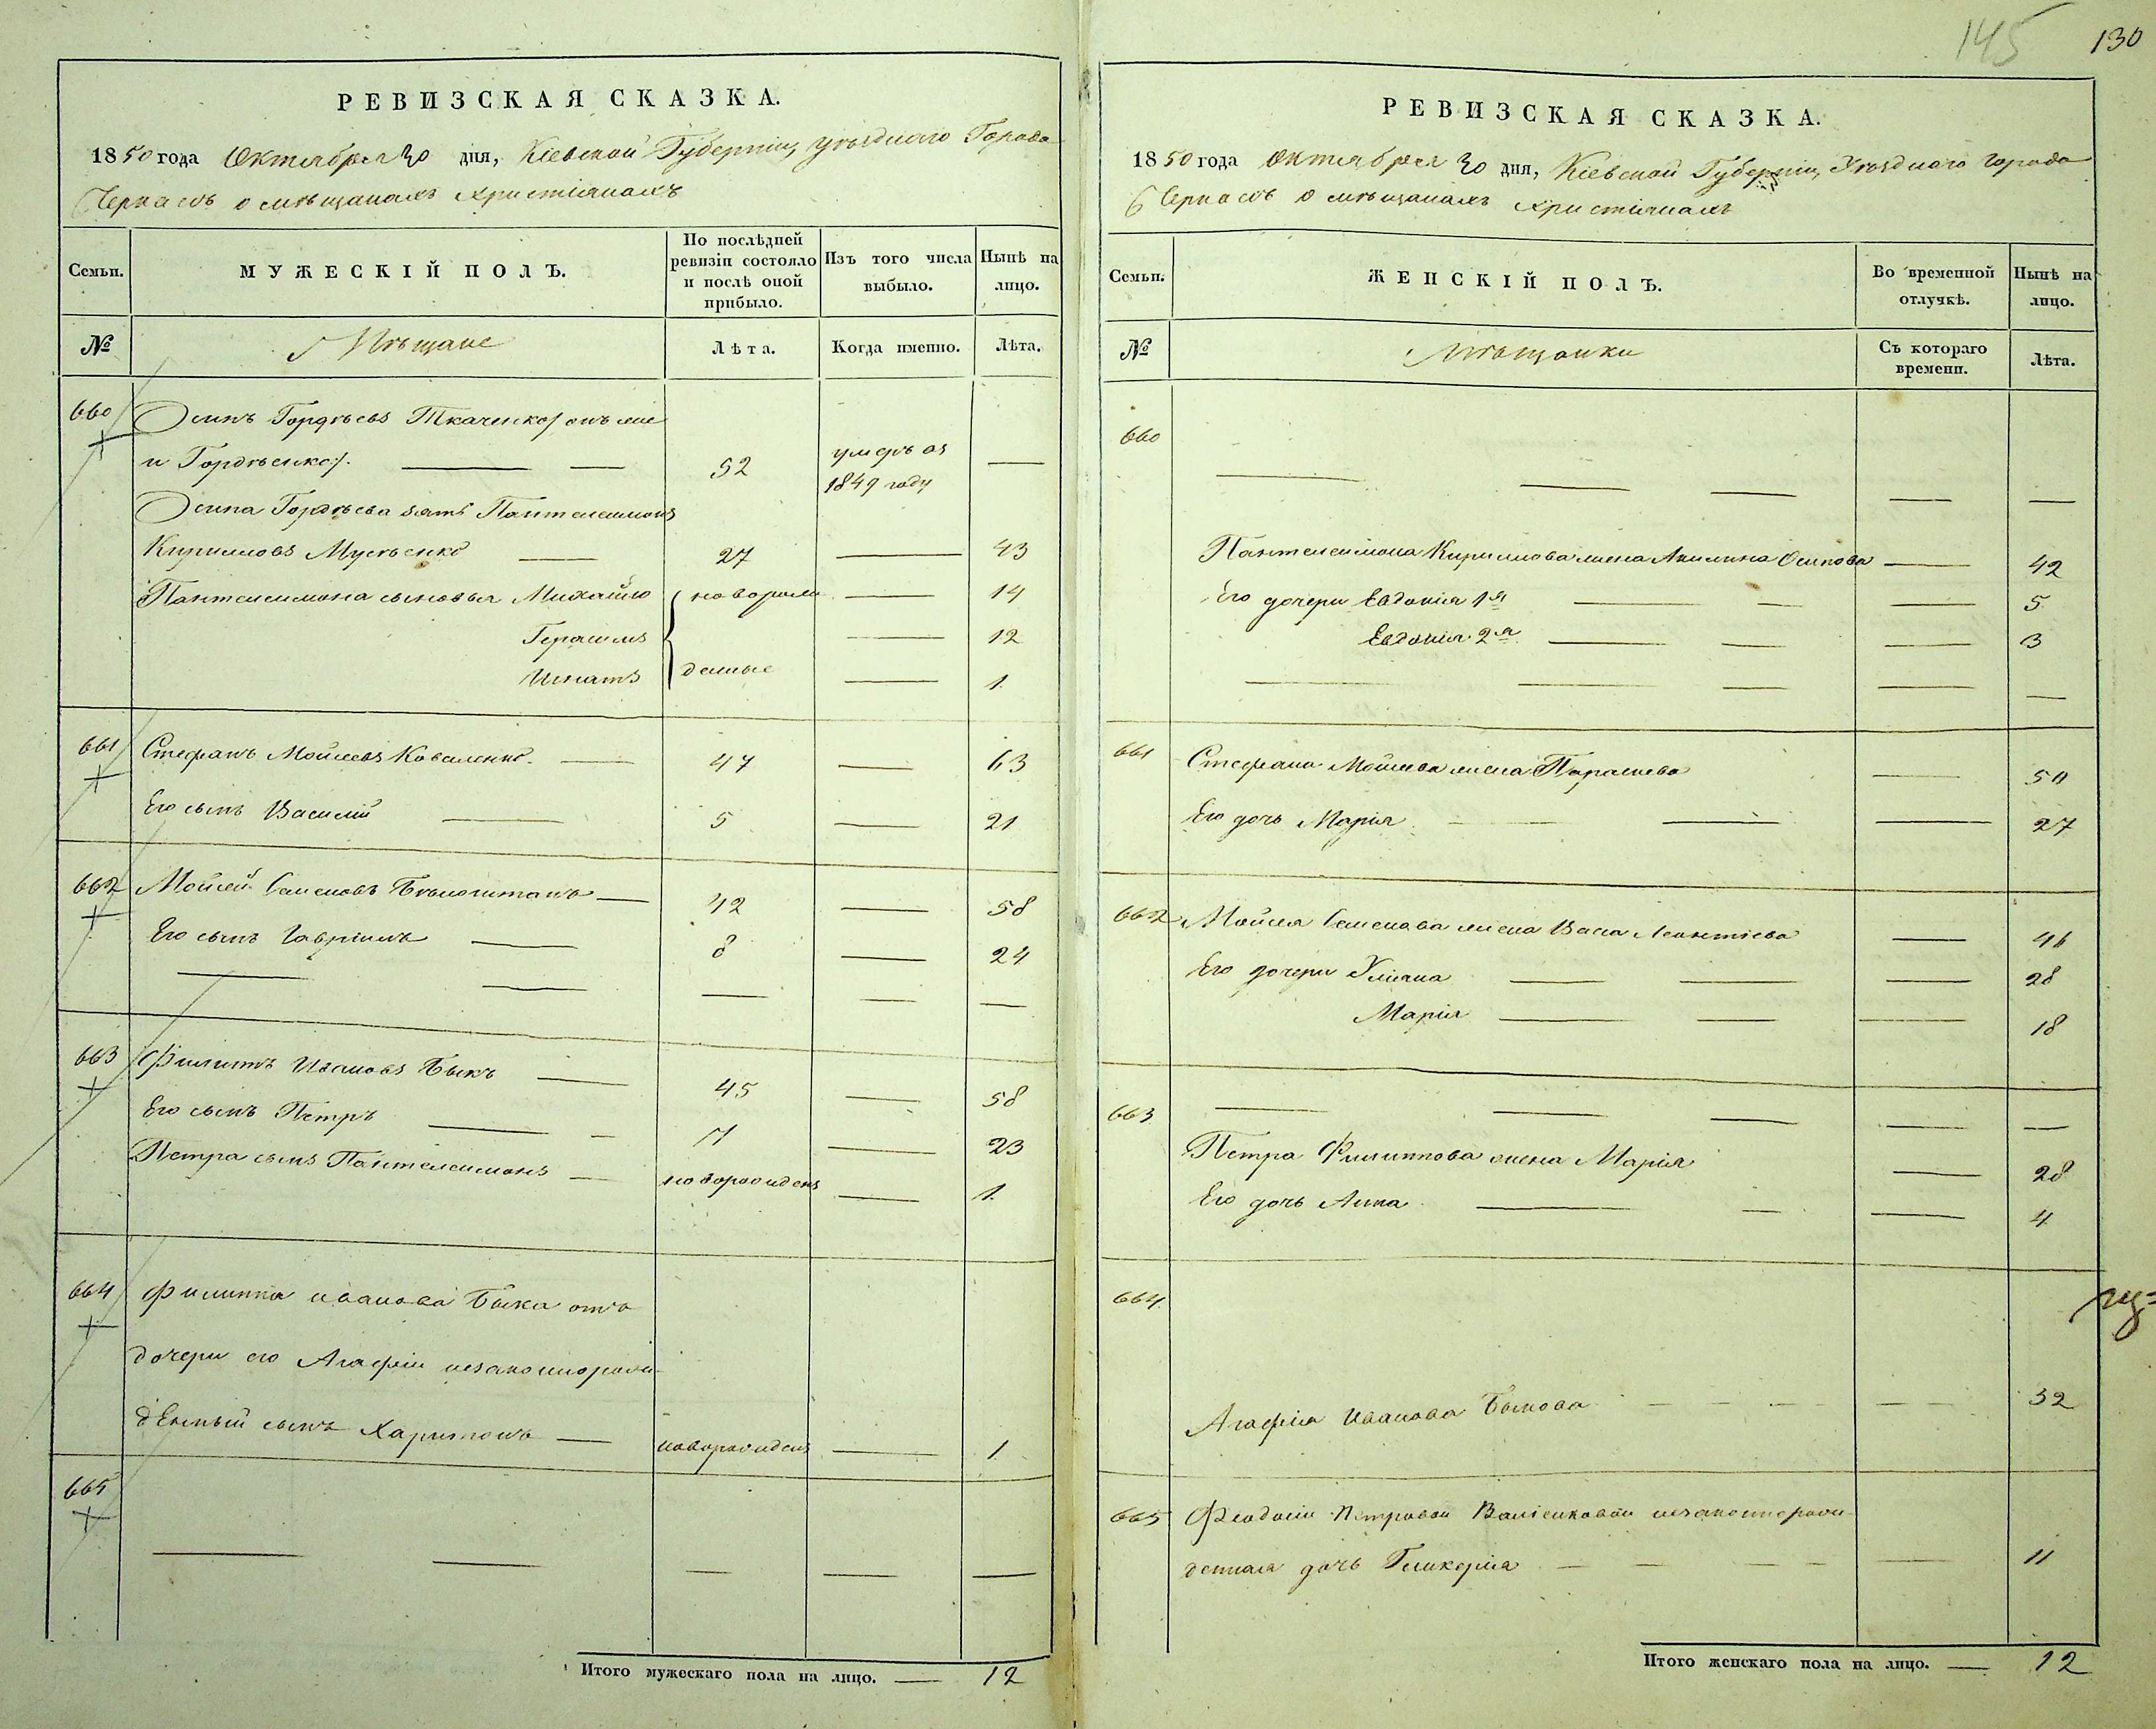 145
130
РЕВИЗСКАЯ СКАЗКА.
1850 года Октября 30 дня, Кіевской Губерніи, уѣзднаго Города
Черкасъ о мѣщанахъ христіянахъ
Семьи.
МУЖЕСКІЙ ПОЛЪ.
По послѣдней ревизіи состояло и послѣ оной прибыло.
Изъ того числа выбыло.
Нынѣ на лицо.
№
Мѣщане
Лѣта.
Когда именно.
Лѣта.
660 Осипъ Гордѣевъ Ткаченко (онъ же
и Гордѣенко). — — 52 умеръ въ 1849 году —
Осипа Гордѣева зять Пантелеимонъ
Кириловъ — 27 — 43
Пантелеимона сыновья Михайло новорож — 14
Герасимъ — 12
Игнатъ денные — 1
661 Стефанъ Мойсеевъ Коваленко — 47 — 63
Его сынъ Василій — 5 — 21
662 Мойсей Семеновъ — 42 — 58
Его сынъ Гавріилъ — 8 — 24
— — — — —
663 Филипъ Ивановъ Быкъ — 45 — 58
Его сынъ Петръ — — 7 — 23
Петра сынъ Пантелеимонъ — новорожденъ — 1
664 Филиппа Иванова Быка отъ
дочери его Агафіи незаконнорож-
денный сынъ Харитонъ — новорожденъ — 1
665
— — — — —
Итого мужескаго пола на лицо. — 12
РЕВИЗСКАЯ СКАЗКА.
1850 года Октября 30 дня, Кіевской Губерніи, Уѣзднаго города
Черкасъ о мѣщанахъ христіянахъ
Семьи.
ЖЕНСКІЙ ПОЛЪ.
Во временной отлучкѣ.
Нынѣ на лицо.
№
Мѣщанки
Съ котораго времени.
Лѣта.
660
— — — — —
Пантелеимона Кирилова жена Акилина Осипова — 42
Его дочери Евдокія 1я — — — 5
Евдокія 2я — — — 3
— — — — —
661 Стефана Мойсеева жена Параскева — 50
Его дочь Марія — — 27
662 Мойсея Семенова жена Васа Леонтіева — 46
Его дочери Уліяна — — — 28
Марія — — — 18
663 — — — — —
Петра Филиппова жена Марія — 28
Его дочь Анна — — — 4
664
Агафія Иванова Быкова — — — — 32
665 Феодосіи Петровой незаконнорож-
денная дочь Гликерія — — — — — 11
Итого женскаго пола на лицо. — 12